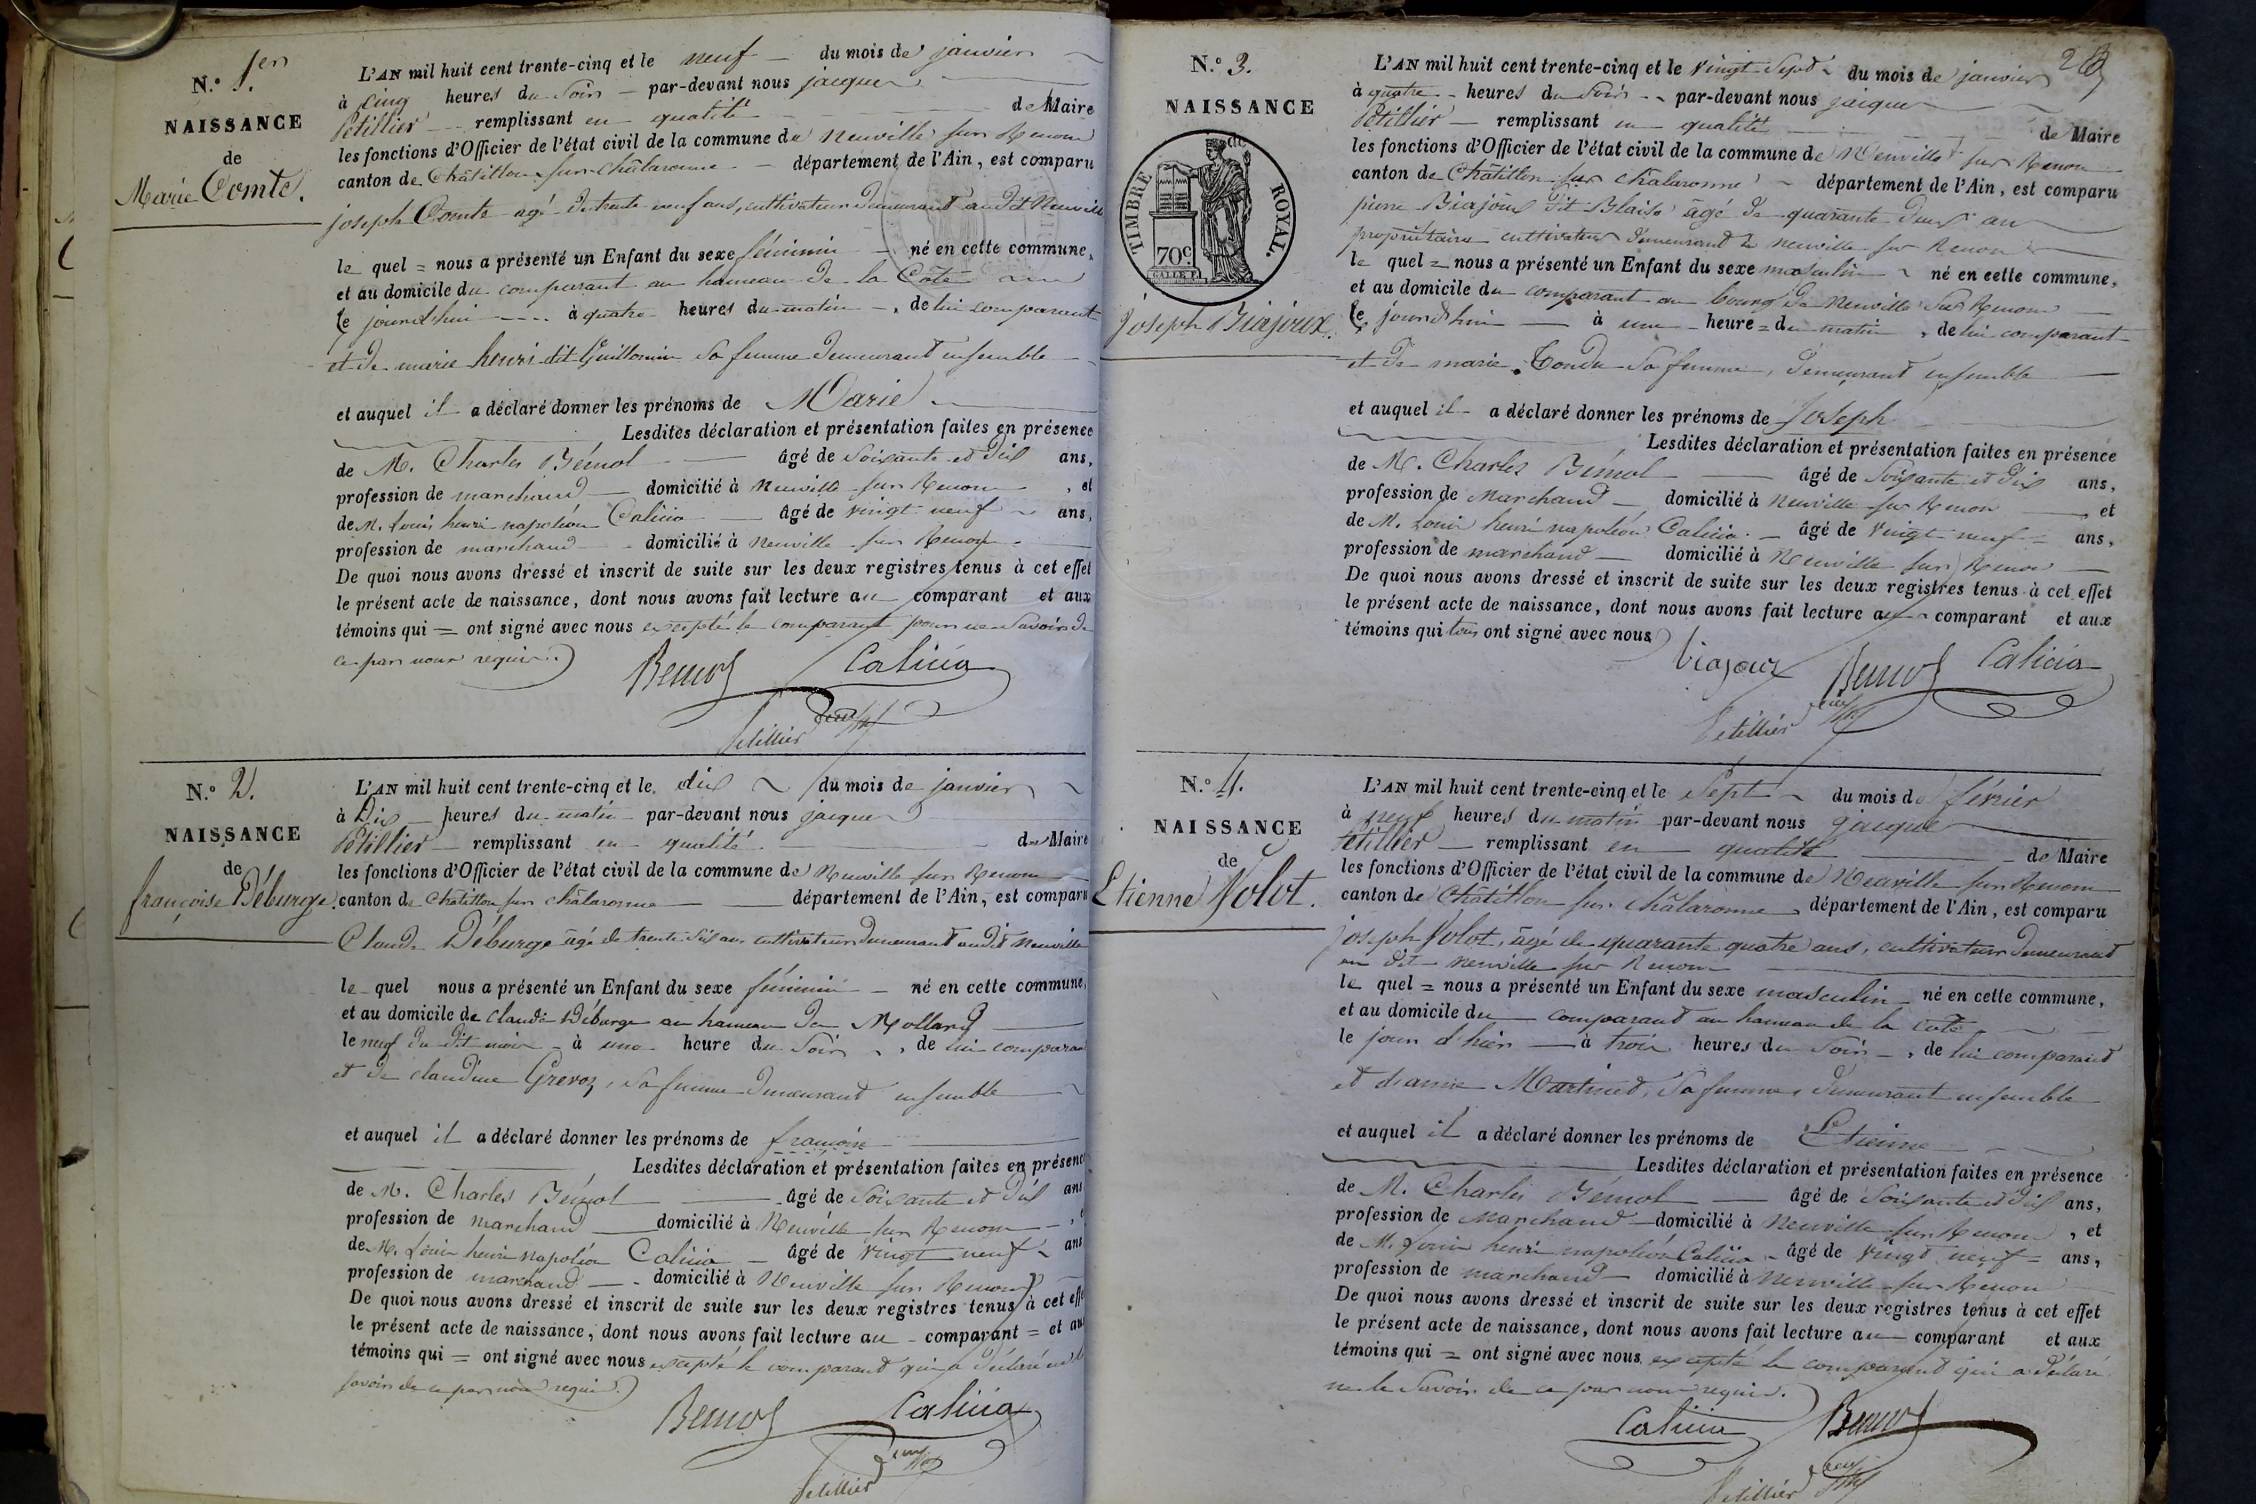 N.º 1.er
NAISSANCE
de
Marie Comte.
L'AN mil huit cent trente-cinq et le neuf du mois de janvier
à cinq heures du soir par-devant nous jacques
Pétillier remplissant en qualité de Maire
les fonctions d'Officier de l'état civil de la commune de Neuville sur Renom
canton de Châtillon sur châlaronne département de l'Ain, est comparu
joseph Comte agé de trente neuf ans, cultivateur demeurant au dit Neuville
le quel = nous a présenté un Enfant du sexe féminin né en cette commune,
et au domicile du comparant au hameau de la Côte
le jourd'hui à quatre heures du matin, de lui comparant
et de marie henri dit Guillomin sa femme demeurant ensemble
et auquel il a déclaré donner les prénoms de Marie
Lesdites déclaration et présentation faites en présence
de M. Charles Bémol âgé de soixante et dix ans,
profession de marchand domicilié à Neuville sur Renom, et
de M. louis henri napoléon Calicia âgé de vingt neuf ans,
profession de marchand domicilié à Neuville sur Renom
De quoi nous avons dressé et inscrit de suite sur les deux registres tenus à cet effet
le présent acte de naissance, dont nous avons fait lecture au comparant et aux
témoins qui = ont signé avec nous excepté le comparant pour ne savoir de
ce par nous requis.
Bemol Calicia
Petillier
N.º 2.
NAISSANCE
de
françoise Déburge.
L'AN mil huit cent trente-cinq et le dix du mois de janvier
à Dix heures du matin par-devant nous jacques
Pétillier remplissant en qualité de Maire
les fonctions d'Officier de l'état civil de la commune de Neuville sur Renom
canton de Châtillon sur châlaronne département de l'Ain, est comparu
Claude Déburge âgé de trente six ans cultivateur demeurant au dit Neuville
le quel nous a présenté un Enfant du sexe féminin né en cette commune,
et au domicile de claude Déburge au hameau du Mollard
le neuf du dit mois à une heure du soir, de lui comparant
et de claudine Grevoz, sa femme demeurant ensemble
et auquel il a déclaré donner les prénoms de françoise
Lesdites déclaration et présentation faites en présence
de M. Charles Bémol âgé de soixante et dix ans
profession de marchand domicilié à Neuville sur Renom,
de M. louis henri napoléon Calicia âgé de vingt neuf ans
profession de marchand domicilié à Neuville sur Renom
De quoi nous avons dressé et inscrit de suite sur les deux registres tenus à cet effet
le présent acte de naissance, dont nous avons fait lecture au comparant = et au
témoins qui = ont signé avec nous excepté le comparant qui a déclaré ne le
savoir de ce par nous requis.
Bemol Calicia
Petillier
263
N.º 3.
NAISSANCE
de
TIMBRE ROYAL.
70c
Joseph Biajoux.
L'AN mil huit cent trente-cinq et le vingt sept du mois de janvier
à quatre heures du soir par-devant nous jacques
Pétillier remplissant en qualité de Maire
les fonctions d'Officier de l'état civil de la commune de Neuville sur Renom
canton de Châtillon sur châlaronne département de l'Ain, est comparu
pierre Biajoux dit Blaise âgé de quarante deux ans
propriétaire cultivateur demeurant à neuville sur Renom
le quel = nous a présenté un Enfant du sexe masculin né en cette commune,
et au domicile du comparant au bourg de Neuville sur Renom
le jourd'hui à une heure = du matin, de lui comparant
et de marie Tondu sa femme, demeurant ensemble
et auquel il a déclaré donner les prénoms de Joseph
Lesdites déclaration et présentation faites en présence
de M. Charles Bémol âgé de soixante et dix ans,
profession de Marchand domicilié à Neuville sur Renom, et
de M. Louis henri napoléon Calicia âgé de vingt neuf ans,
profession de marchand domicilié à Neuville sur Renom
De quoi nous avons dressé et inscrit de suite sur les deux registres tenus à cet effet
le présent acte de naissance, dont nous avons fait lecture au comparant et aux
témoins qui tous ont signé avec nous
biajoux Bemol Calicia
Petillier
N.º 4.
NAISSANCE
de
Etienne Volot.
L'AN mil huit cent trente-cinq et le Sept du mois de février
à neuf heures du matin par-devant nous jacques
Pétillier remplissant en qualité de Maire
les fonctions d'Officier de l'état civil de la commune de Neuville sur Renom
canton de Châtillon sur châlaronne département de l'Ain, est comparu
joseph Volot, âgé de quarante quatre ans, cultivateur demeurant
au dit neuville sur Renom
le quel = nous a présenté un Enfant du sexe masculin né en cette commune,
et au domicile du comparant au hameau de la côte
le jour d'hier à trois heures du soir, de lui comparant
et d'anne Martinet, sa femme, demeurant ensemble
et auquel il a déclaré donner les prénoms de Etienne
Lesdites déclaration et présentation faites en présence
de M. Charles Bémol âgé de soixante et dix ans,
profession de Marchand domicilié à Neuville sur Renom, et
de M. Louis henri napoléon Calicia âgé de vingt neuf = ans,
profession de marchand domicilié à Neuville sur Renom
De quoi nous avons dressé et inscrit de suite sur les deux registres tenus à cet effet
le présent acte de naissance, dont nous avons fait lecture au comparant et aux
témoins qui = ont signé avec nous excepté le comparant qui a déclaré
ne le savoir de ce par nous requis.
Calicia Bemol
Petillier